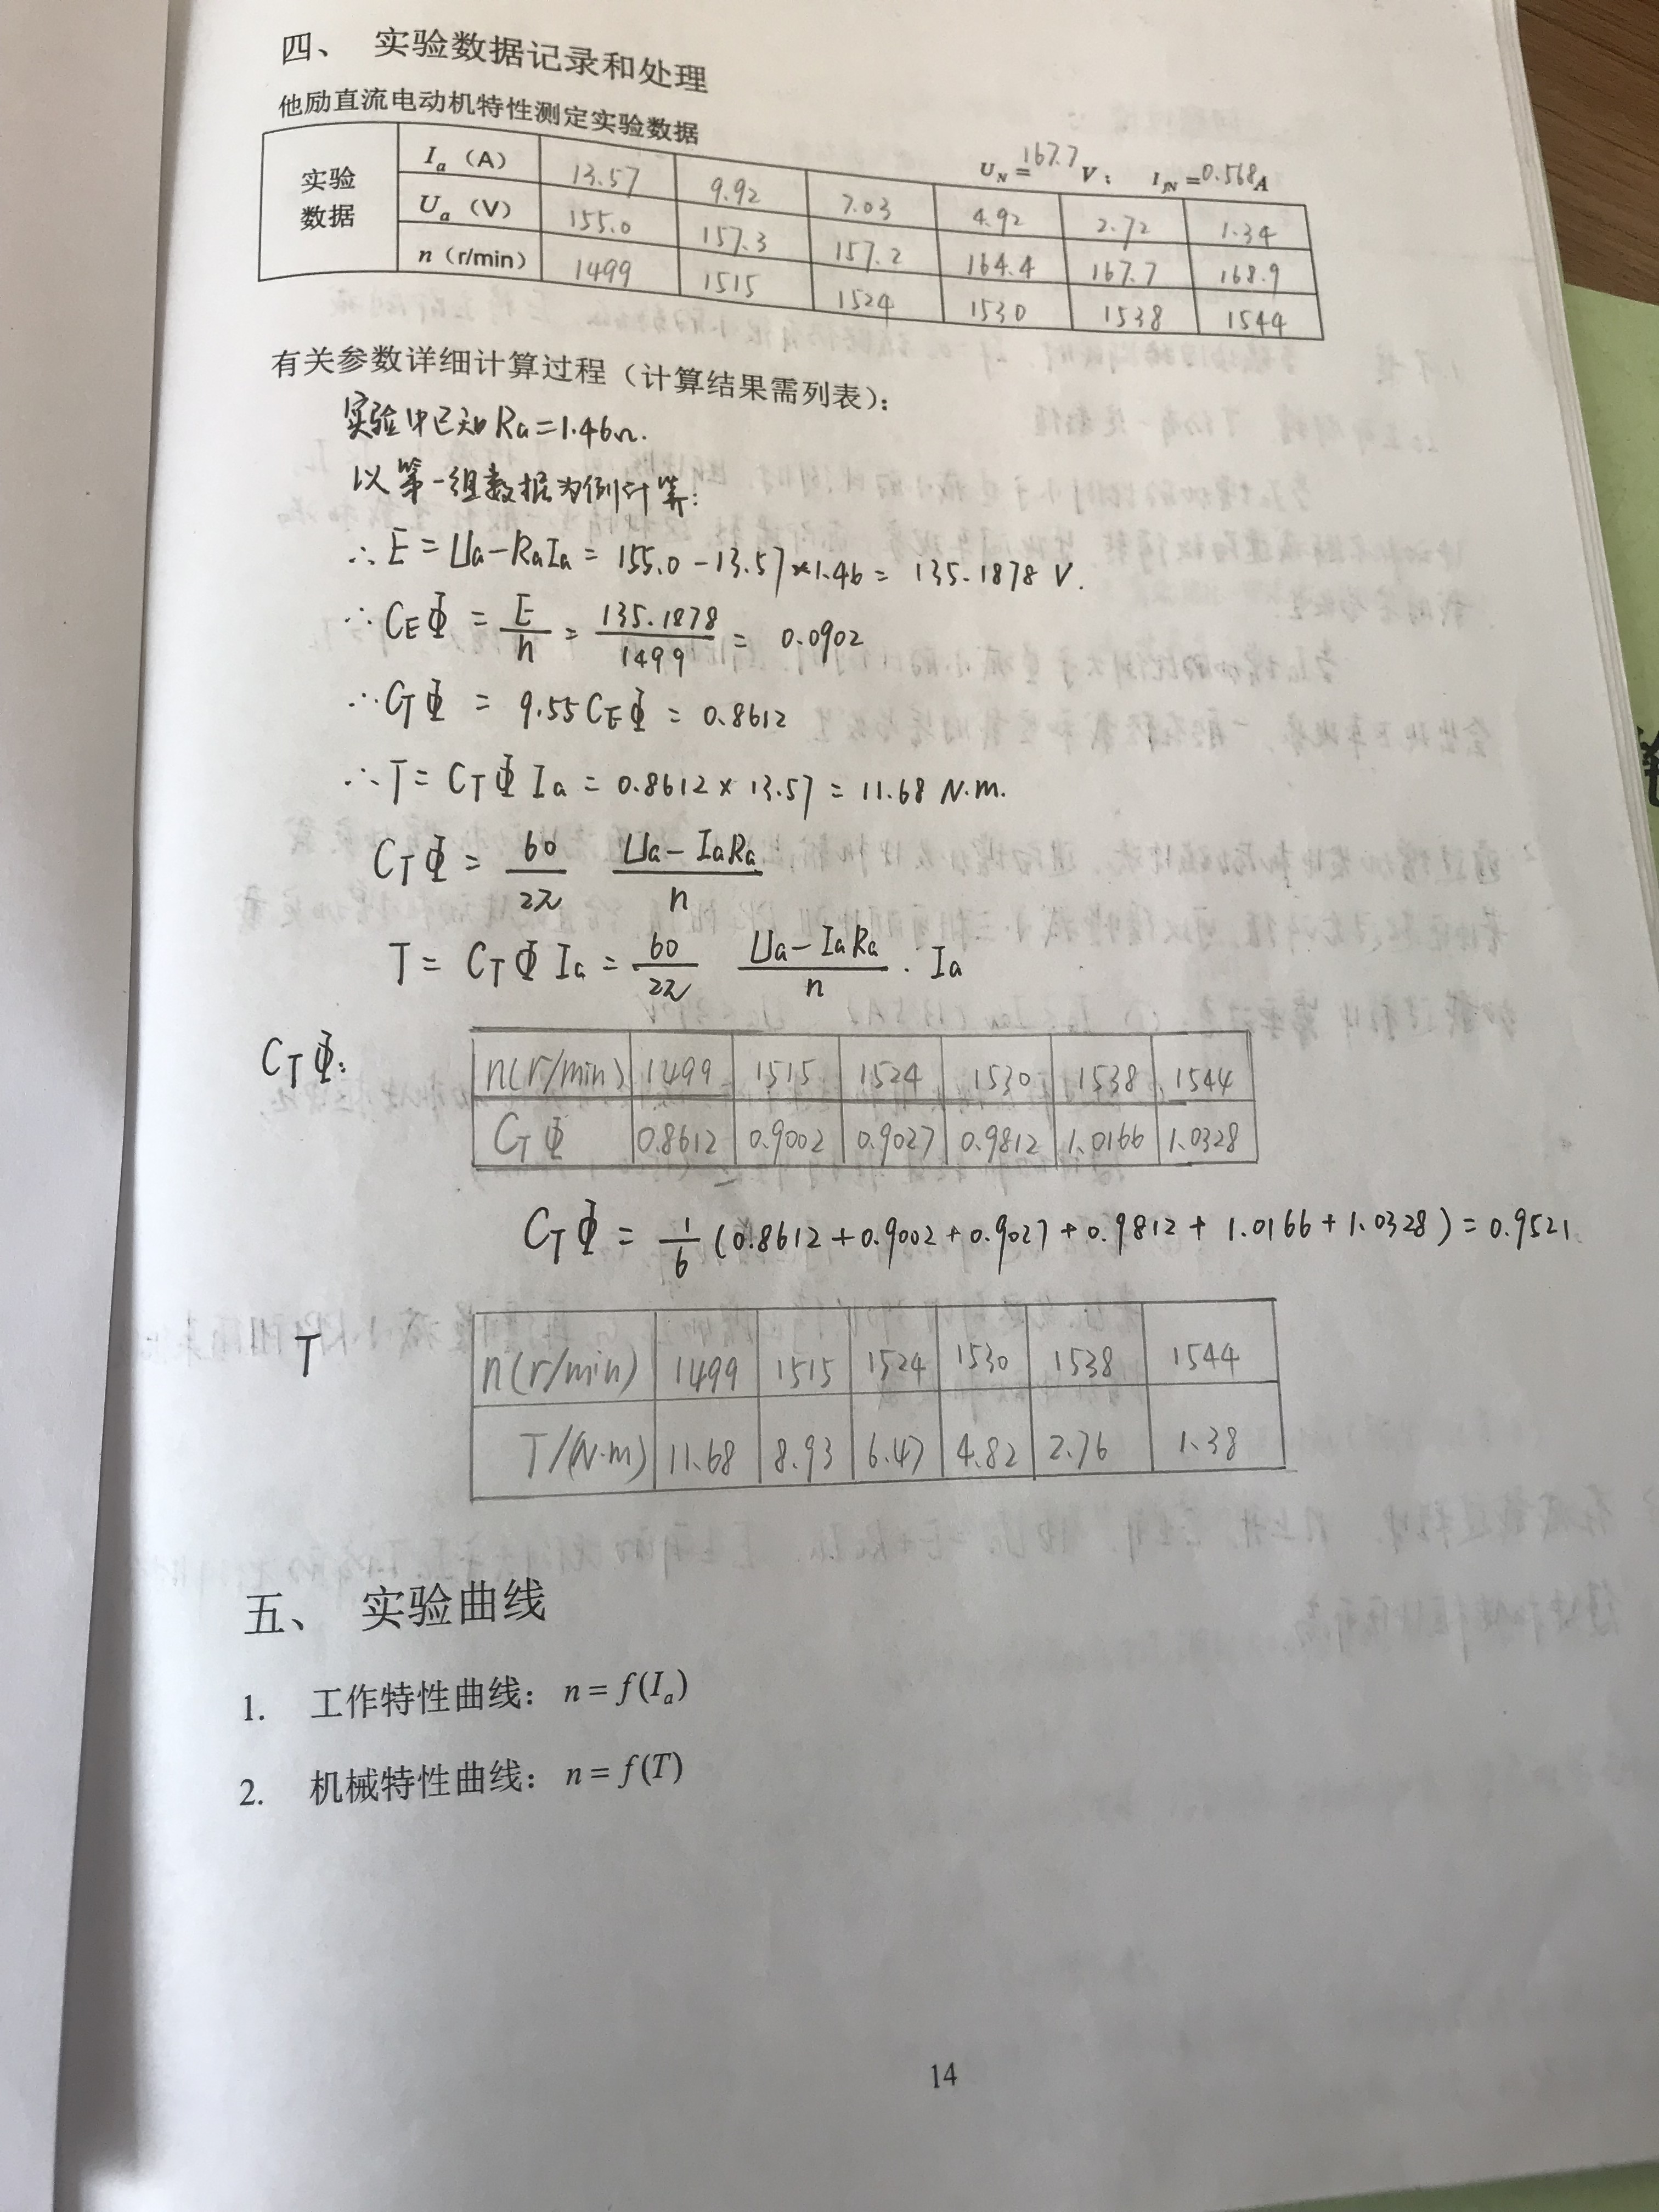 四、 实验数据记录和处理
他励直流电动机特性测定实验数据
U_N = 167.7 V； I_fN = 0.568A
实验数据 I_a（A） 13.57 9.92 7.03 4.92 2.72 1.34
U_a（V） 155.0 157.3 157.2 164.4 167.7 168.9
n（r/min） 1499 1515 1524 1530 1538 1544
有关参数详细计算过程（计算结果需列表）：
实验中已知 Ra=1.46Ω.
以第一组数据为例计算：
∴ E = Ua-RaIa = 155.0 - 13.57×1.46 = 135.1878 V.
∴ CEΦ = E/n = 135.1878/1499 = 0.0902
∴ CTΦ = 9.55CEΦ = 0.8612
∴ T = CTΦ Ia = 0.8612 × 13.57 = 11.68 N.m.
CTΦ = 60/2π (Ua-IaRa)/n
T = CTΦ Ia = 60/2π (Ua-IaRa)/n · Ia
CTΦ:
n(r/min) 1499 1515 1524 1530 1538 1544
CTΦ 0.8612 0.9002 0.9027 0.9812 1.0166 1.0328
CTΦ = 1/6 (0.8612+0.9002+0.9027+0.9812+1.0166+1.0328) = 0.9521
T
n(r/min) 1499 1515 1524 1530 1538 1544
T/(N·m) 11.68 8.93 6.47 4.82 2.76 1.38
五、 实验曲线
1. 工作特性曲线： n = f(I_a)
2. 机械特性曲线： n = f(T)
14